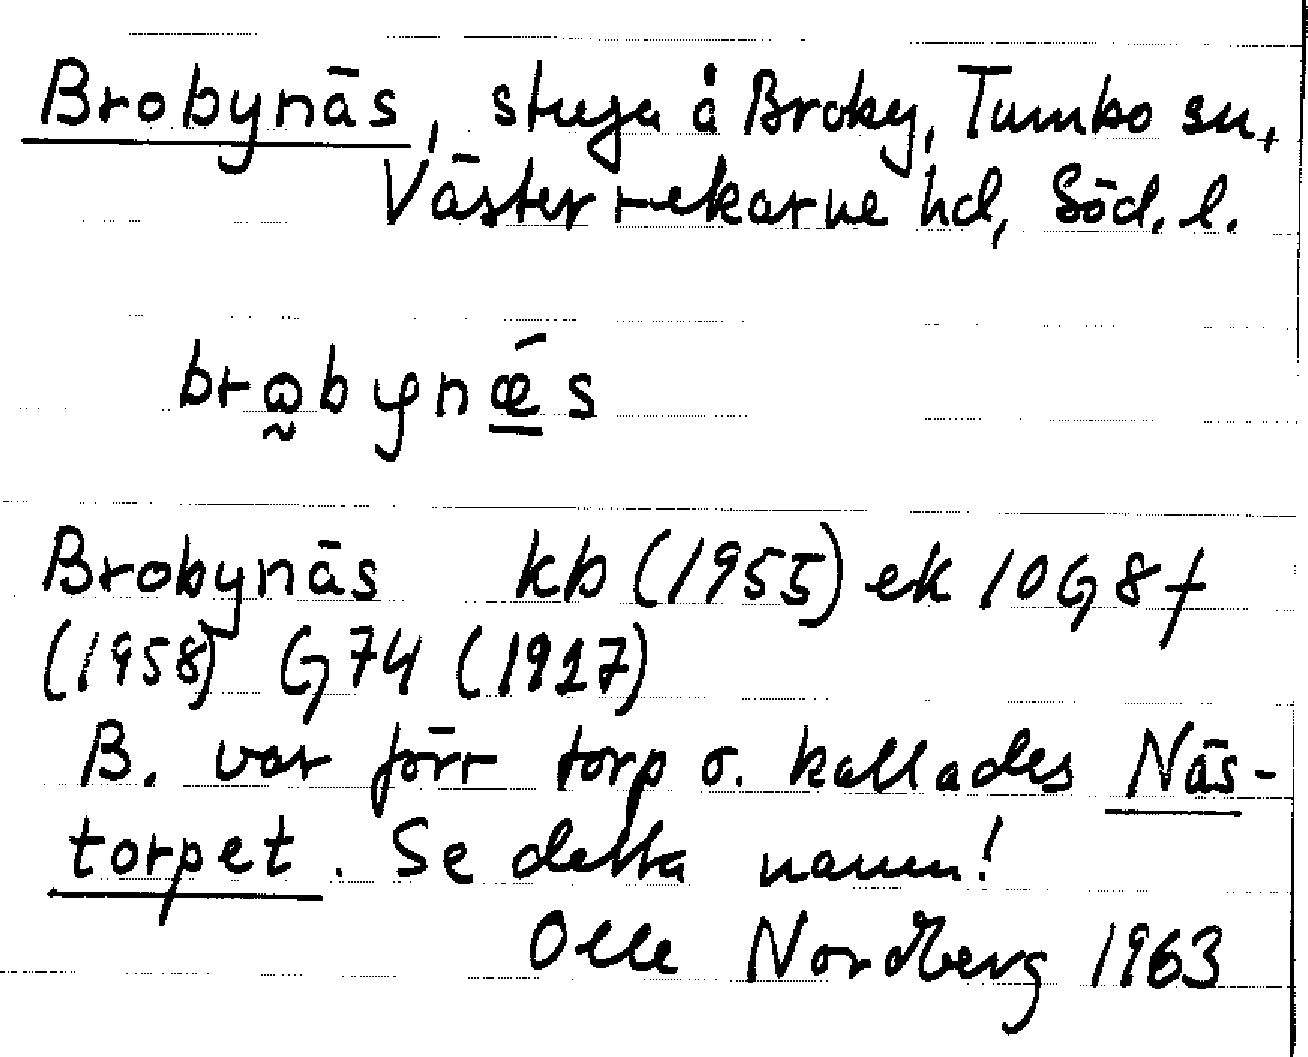 Brobynäs, stuga å Broby, Tumbo sn,
Västerrekarne hd, Söd. l.
brω̰bynǽs
Brobynäs kb (1955) ek 10G8f
(1958) G74 (1927)
B. var förr torp o. kallades Näs-
torpet. Se detta namn!
Olle Nordberg 1963